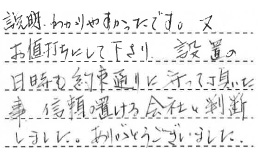 説明.わかりやすかったです。又
お値打ちにして下さり 設置の
日時も約束通りに守って頂いた
事 信頼の置ける会社と判断
しました。ありがとうございました.